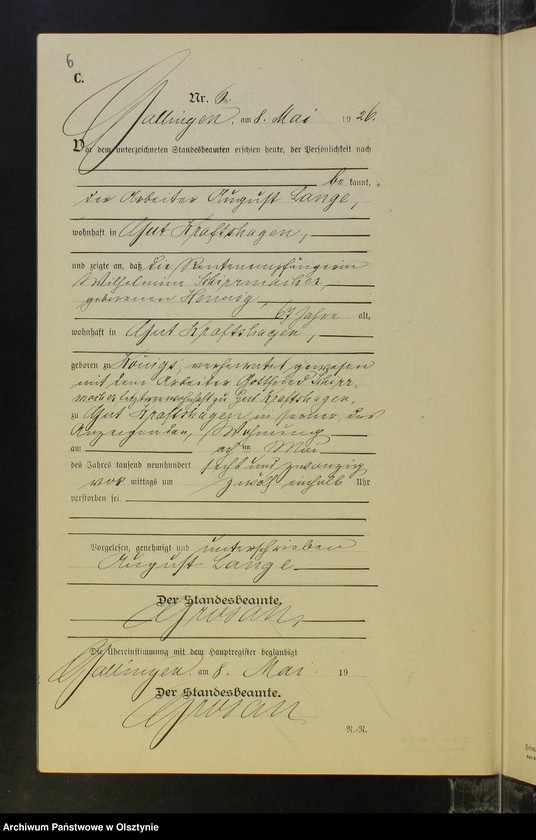 6
C.
Nr. 6.
Gallingen, am 8. Mai 1926.
Vor dem unterzeichneten Standesbeamten erschien heute, der Persönlichkeit nach
be kannt,
der Arbeiter August Lange,
wohnhaft in Gut Kraftshagen,
und zeigte an, daß die Rentenempfängerin
Wilhelmine Schirrmacher,
geborenen Hennig,
67 Jahre alt,
wohnhaft in Gut Kraftshagen,
geboren zu Königs, verheiratet gewesen
mit dem Arbeiter Gottfried Schirr-
macher letzterer wohnhaft zu Gut Kraftshagen,
zu Gut Kraftshagen in seiner, des
Anzeigenden, Wohnung
am ten Mai
des Jahres tausend neunhundert sechs und zwanzig
vor mittags um zwölf einhalb Uhr
verstorben sei.
Vorgelesen, genehmigt und unterschrieben
August Lange
Der Standesbeamte.
Die Übereinstimmung mit dem Hauptregister beglaubigt
Gallingen, am 8. Mai 19
Der Standesbeamte.
R.-R.
Archiwum Państwowe w Olsztynie